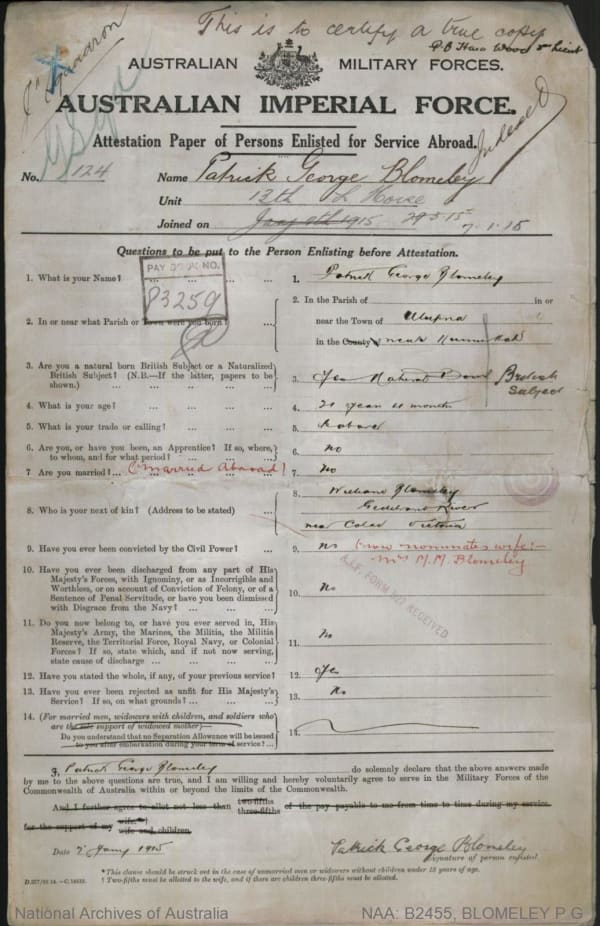 This is to certify a true copy
P.B. Wood 2nd Lieut
"C" Squadron
AUSTRALIAN MILITARY FORCES.
AUSTRALIAN IMPERIAL FORCE.
Indexed
Attestation Paper of Persons Enlisted for Service Abroad.
No. 124 Name Patrick George Blomeley
Unit 13th L Horse
Joined on Jany 9th 1915 29.5.15 7.1.15
Questions to be put to the Person Enlisting before Attestation.
PAY BOOK NO.
83259
1. What is your Name? ... ... 1. Patrick George Blomeley
2. In or near what Parish or Town were you born? ... 2. In the Parish of in or
near the Town of Ulupna
in the County of near Numurkah
3. Are you a natural born British Subject or a Naturalized
British Subject? (N.B.—If the latter, papers to be
shown.) ... ... ... 3. Yes Natural Born British
Subject
4. What is your age? ... ... ... 4. 21 years 11 months
5. What is your trade or calling? ... ... 5. Labourer
6. Are you, or have you been, an Apprentice? If so, where,
to whom, and for what period? ... ... 6. No
7. Are you married? ... (married Abroad) 7. No
8. Who is your next of kin? (Address to be stated) ... 8. William Blomeley
Gellibrand River
near Colac Victoria
9. Have you ever been convicted by the Civil Power? ... 9. No (now nominates wife:-
Mrs M. M. BLOMELEY
A.I.F. FORM RECEIVED
10. Have you ever been discharged from any part of His
Majesty's Forces, with Ignominy, or as Incorrigible and
Worthless, or on account of Conviction of Felony, or of a
Sentence of Penal Servitude, or have you been dismissed
with Disgrace from the Navy? ... ... 10. No
11. Do you now belong to, or have you ever served in, His
Majesty's Army, the Marines, the Militia, the Militia
Reserve, the Territorial Force, Royal Navy, or Colonial
Forces? If so, state which, and if not now serving,
state cause of discharge ... ... ... 11. No
12. Have you stated the whole, if any, of your previous service? 12. Yes
13. Have you ever been rejected as unfit for His Majesty's
Service? If so, on what grounds? ... ... 13. No
14. (For married men, widowers with children, and soldiers who
are the sole support of widowed mother)—
Do you understand that no Separation Allowance will be issued
to you after embarkation during your term of service? ... 14.
I, Patrick George Blomeley do solemnly declare that the above answers made
by me to the above questions are true, and I am willing and hereby voluntarily agree to serve in the Military Forces of the
Commonwealth of Australia within or beyond the limits of the Commonwealth.
And I further agree to allot not less than two-fifths three-fifths of the pay payable to me from time to time during my service
for the support of my wife.* wife and children.
Date 7 Jany 1915 Patrick George Blomeley
Signature of person enlisted.
* This clause should be struck out in the case of unmarried men or widowers without children under 18 years of age.
† Two-fifths must be allotted to the wife, and if there are children three-fifths must be allotted.
National Archives of Australia NAA: B2455, BLOMELEY P G